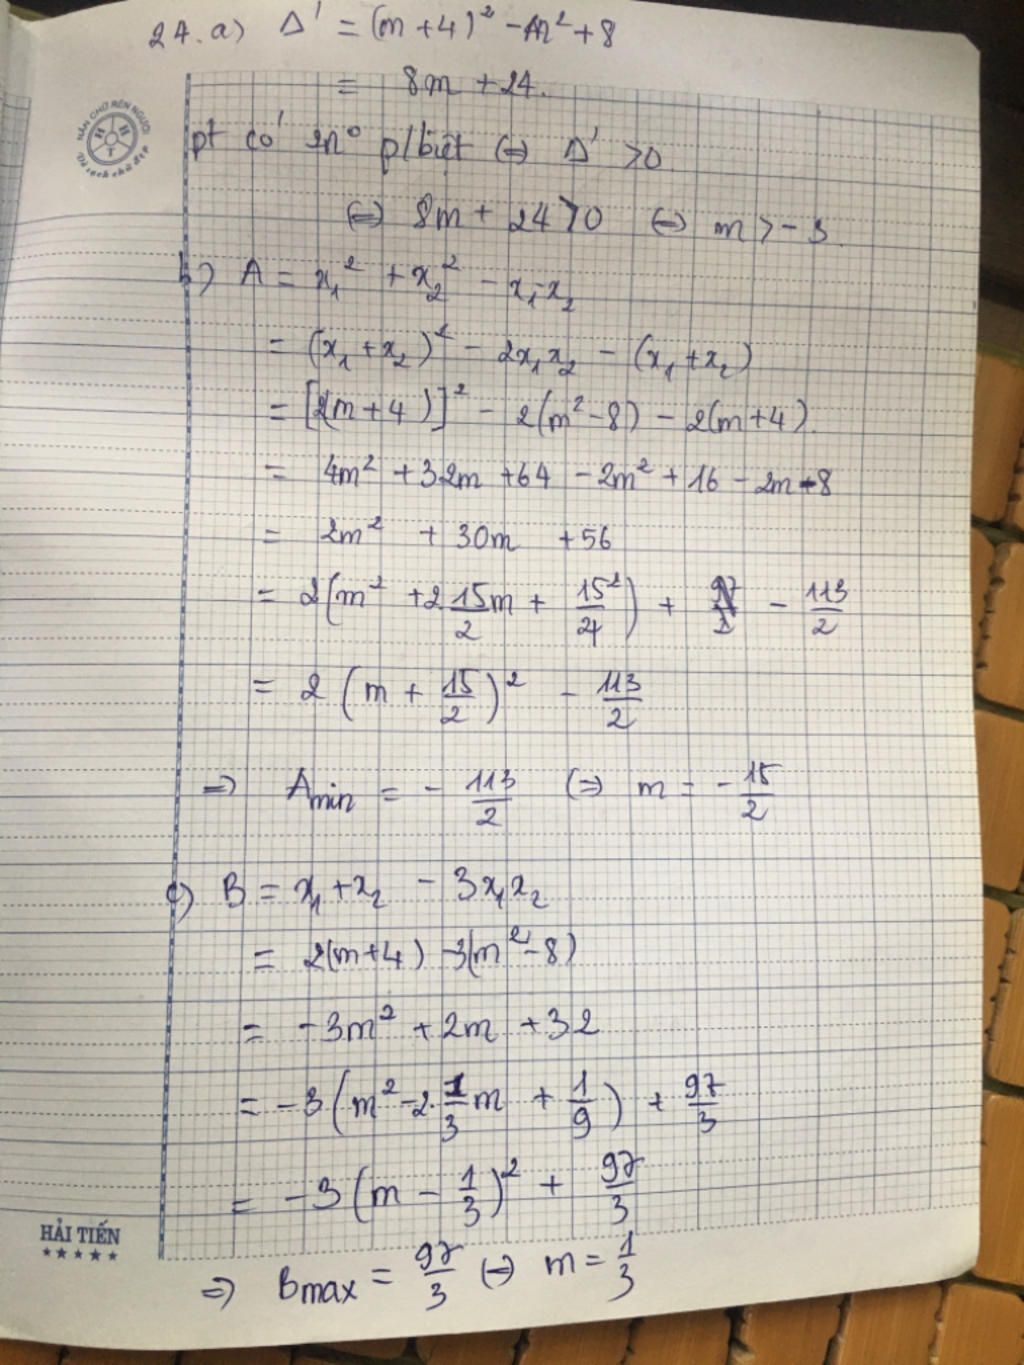 24. a) Δ' = (m+4)² - m² + 8
= 8m + 24.
NẮN CHỮ RÈN NGƯỜI
HHT
Vở sạch chữ đẹp
pt có 2n° p/biệt ⇔ Δ' > 0
⇔ 8m + 24 > 0 ⇔ m > -3.
b) A = x₁² + x₂² - x₁ - x₂
= (x₁ + x₂)² - 2x₁x₂ - (x₁ + x₂)
= [2(m+4)]² - 2(m² - 8) - 2(m+4).
= 4m² + 32m + 64 - 2m² + 16 - 2m - 8
= 2m² + 30m + 56
= 2(m² + 2 15/2 m + 15²/4) + - 113/2
= 2(m + 15/2)² - 113/2
⇒ Amin = - 113/2 ⇔ m = - 15/2
c) B = x₁ + x₂ - 3x₁x₂
= 2(m+4) - 3(m² - 8)
= -3m² + 2m + 32
= -3(m² - 2. 1/3 m + 1/9) + 97/3
= -3(m - 1/3)² + 97/3
HẢI TIẾN
★★★★★
⇒ Bmax = 97/3 ⇔ m = 1/3